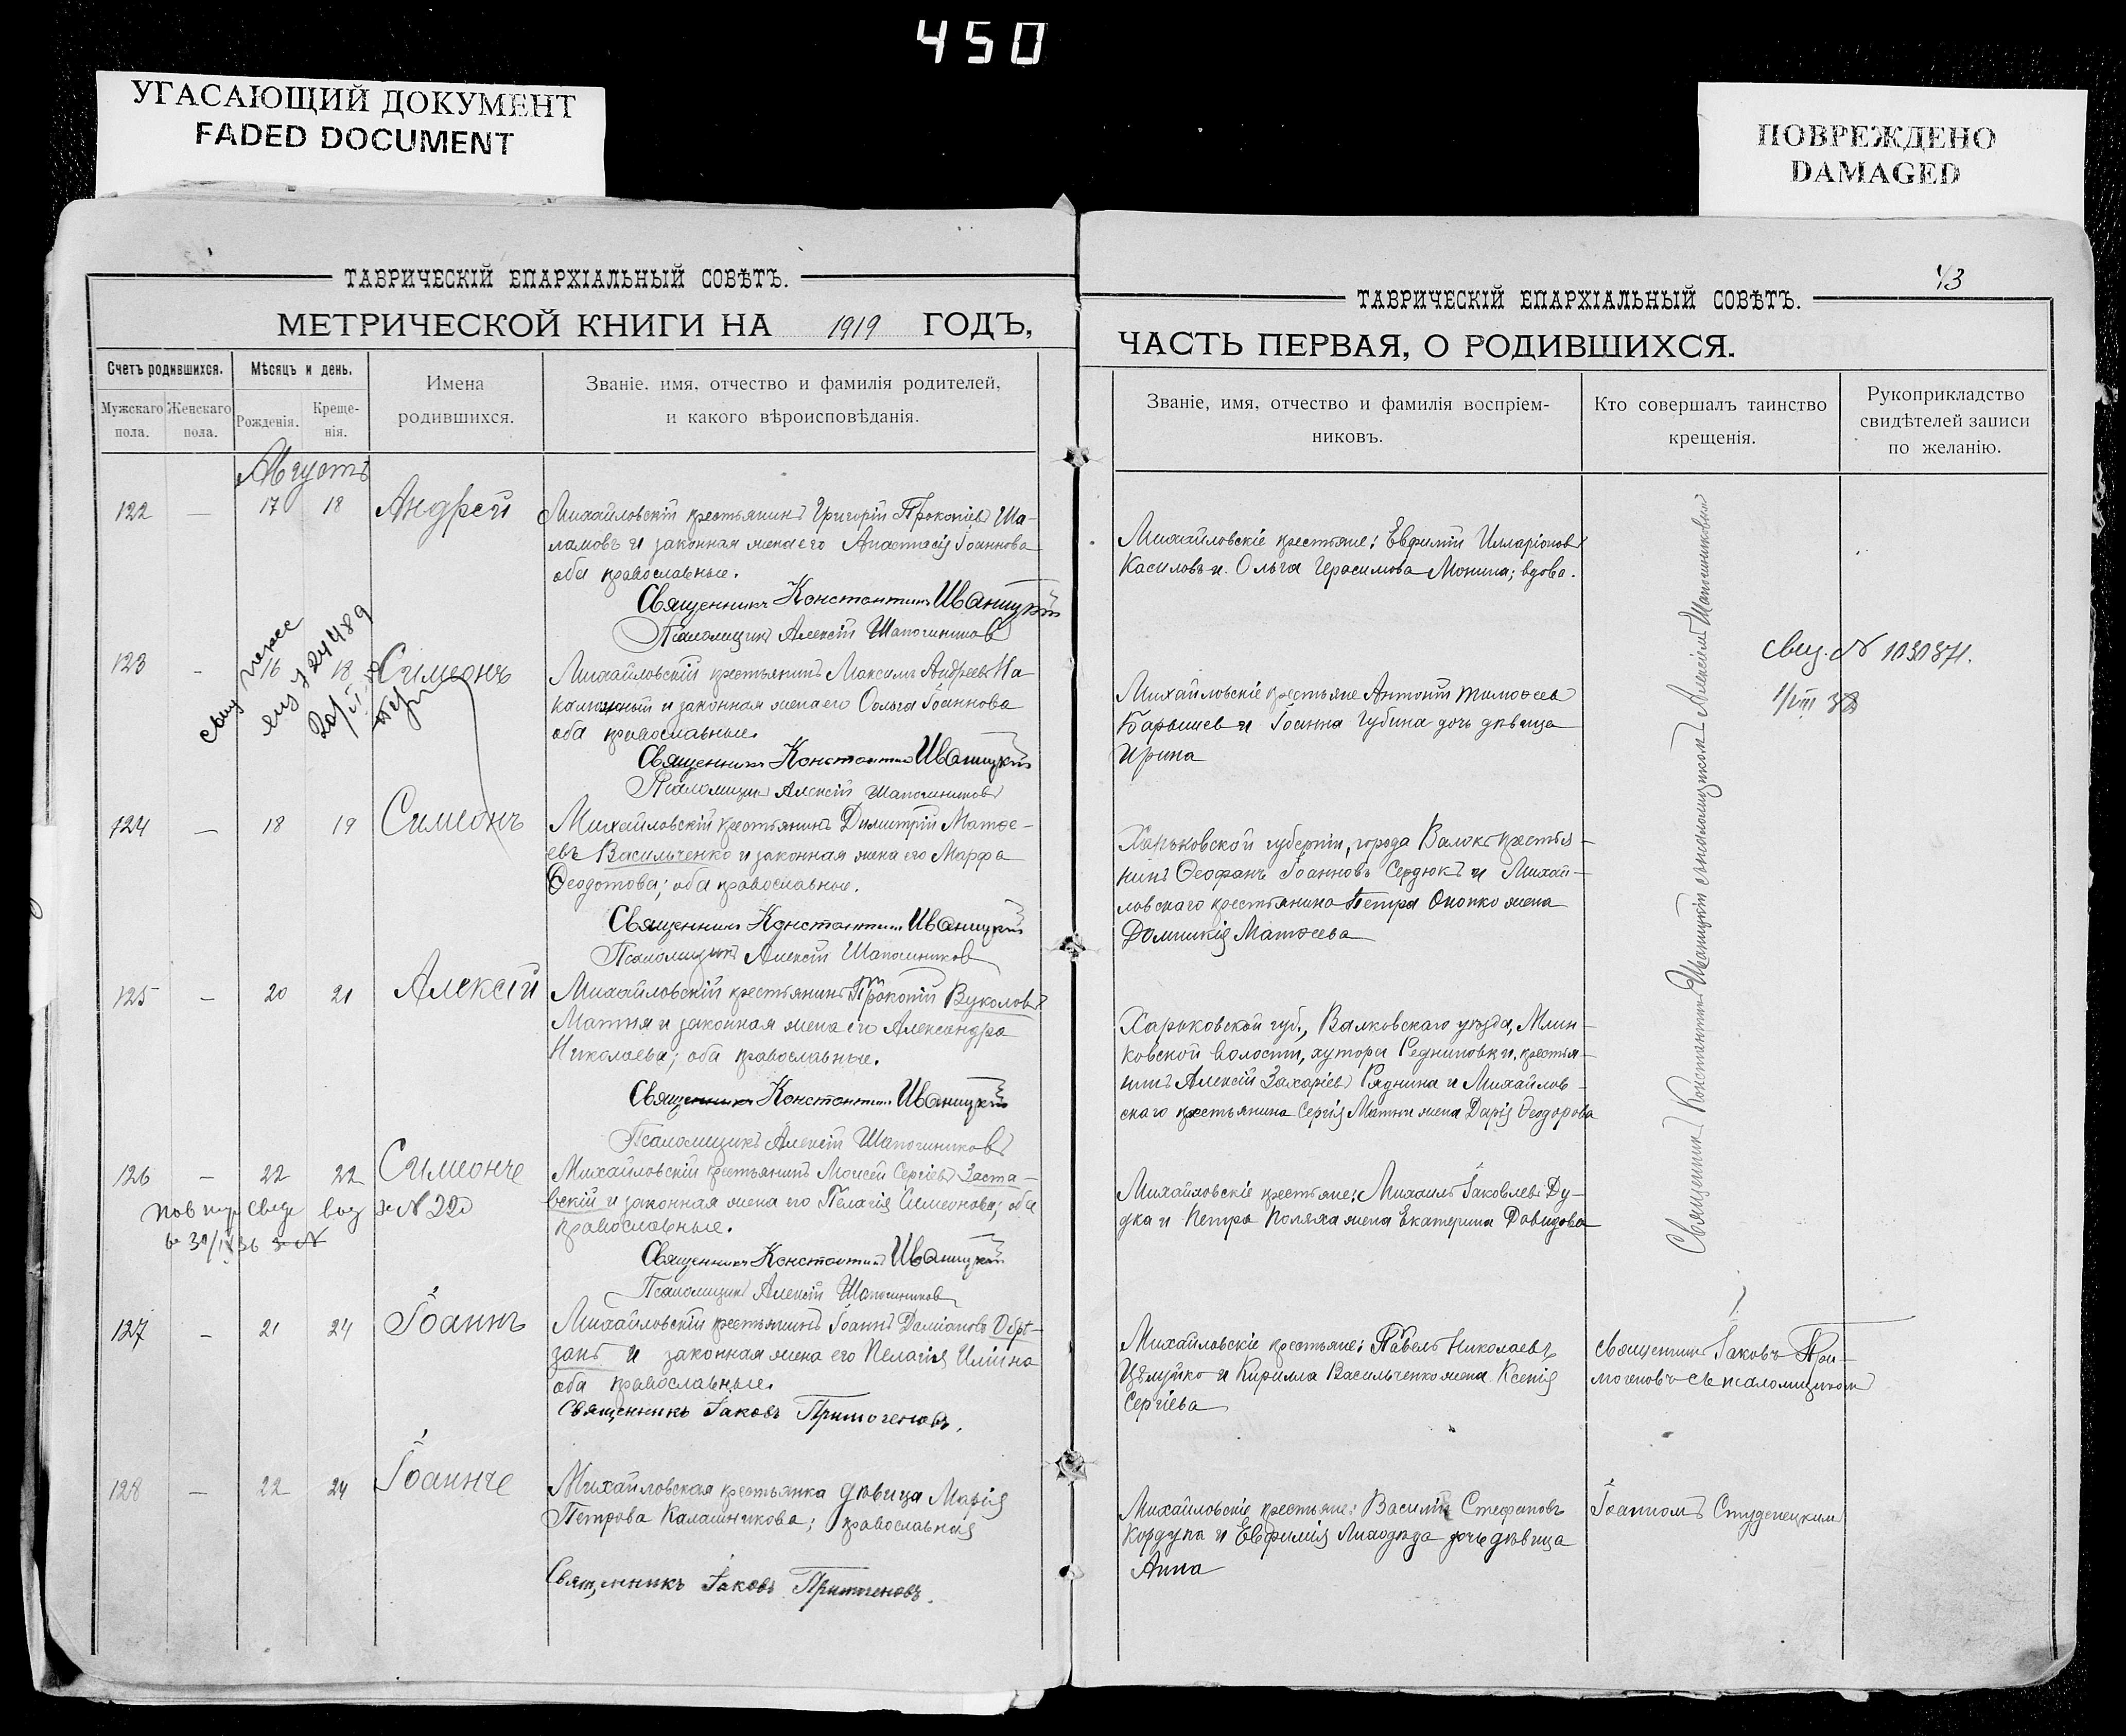 450
УГАСАЮЩИЙ ДОКУМЕНТ
FADED DOCUMENT
ПОВРЕЖДЕНО
DAMAGED
ТАВРИЧЕСКІЙ ЕПАРХІАЛЬНЫЙ СОВѢТЪ.
МЕТРИЧЕСКОЙ КНИГИ НА 1919 ГОДЪ,
Счетъ родившихся.
Мѣсяцъ и день.
Имена
родившихся.
Званіе. имя, отчество и фамилія родителей,
и какого вѣроисповѣданія.
Мужскаго
пола.
Женскаго
пола.
Рожденія.
Креще-
нія.
Августъ
122 — 17 18 Андрей
Михайловскій крестьянинъ Григорій Прокопіевъ Ша-
ламовъ и законная жена его Анастасія Іоаннова
оба православные.
Священникъ Константинъ Иваницкій
Псаломщикъ Алексій Шапошниковъ
123 - 16 18 Симеонъ
24489
Михайловскій крестьянинъ Максимъ Андреевъ На
и законная жена его Ольга Іоаннова
оба православные.
Священникъ Константинъ Иваницкій
Псаломщикъ Алексій Шапошниковъ
124 — 18 19 Симеонъ
Михайловскій крестьянинъ Димитрій Матѳе-
евъ Васильченко и законная жена его Марфа
Ѳеодотова; оба православные.
Священникъ Константинъ Иваницкій
Псаломщикъ Алексій Шапошниковъ
125 — 20 21 Алексій
Михайловскій крестьянинъ Прокопій Вуколовъ
Матня и законная жена его Александра
Николаева; оба православные.
Священникъ Константинъ Иваницкій
Псаломщикъ Алексій Шапошниковъ
126 — 22 22 Симеонче
Михайловскій крестьянинъ Моисей Сергіевъ Заста-
вскій и законная жена его Пелагія Симеонова; оба
православные.
Священникъ Константинъ Иваницкій
Псаломщикъ Алексій Шапошниковъ
127 — 21 24 Іоаннъ
Михайловскій крестьянинъ Іоаннъ Даміановъ Обрѣ-
занъ и законная жена его Пелагія Иліина
оба православные.
Священникъ Іаковъ Примогеновъ.
128 — 22 24 Іоаннче
Михайловская крестьянка дѣвица Марія
Петрова Калашникова; православная
Священникъ Іаковъ Примогеновъ.
43
ТАВРИЧЕСКІЙ ЕПАРХІАЛЬНЫЙ СОВѢТЪ.
ЧАСТЬ ПЕРВАЯ, О РОДИВШИХСЯ.
Званіе, имя, отчество и фамилія воспріем-
никовъ.
Кто совершалъ таинство
крещенія.
Рукоприкладство
свидѣтелей записи
по желанію.
Михайловскіе крестьяне: Евфимій Илларіоновъ
Касиловъ и Ольга Герасимова Монина; вдова.
Михайловскіе крестьяне Антоній Тимоѳеевъ
Барышев и Іоанна Губина дочь дѣвица
Ирина
Харьковской губерніи, города Валокъ крестья-
нинъ Ѳеофанъ Іоанновъ Сердюкъ и Михай-
ловскаго крестьянина Петра Онопко жена
Домникія Матѳеева
Харьковской губ., Валковскаго уѣзда, Млин-
ковской волости, хутора крестья-
нинъ Алексій Захаріевъ Ряднина и Михайлов-
скаго крестьянина Сергія Матни жена Дарія Ѳеодорова
Михайловскіе крестьяне: Михаилъ Іаковлевъ Ду-
дка и Петра Поляха жена Екатерина Давидова
Михайловскіе крестьяне: Павелъ Николаевъ
Цѣлуйко и Кирилла Васильченко жена Ксенія
Сергіева
Михайловскіе крестьяне: Василій Стефановъ
Кордупа и Евфимія Лиходѣда дочь дѣвица
Анна
Священникъ Константинъ Иваницкій съ псаломщикомъ Алексіемъ Шапошниковымъ
священникъ Іаковъ При-
могеновъ съ псаломщикомъ
Іоанномъ Студенецкимъ
Свид. № 1030371.
1/VIII 38